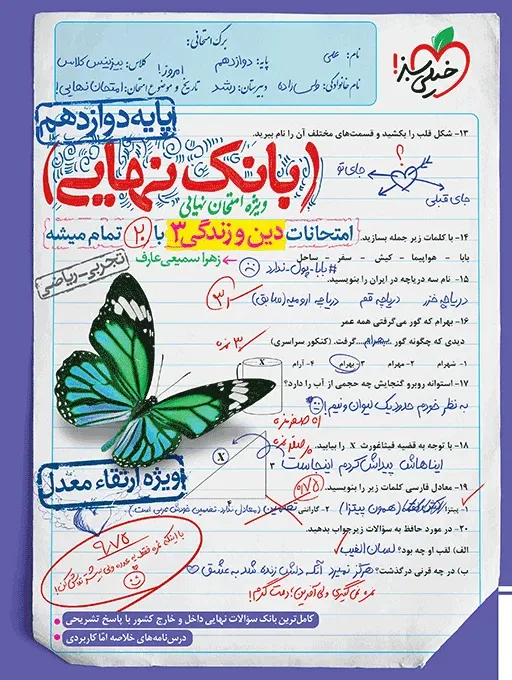 خیلی سبز!
برگ امتحانی:
نام: علی
پایه: دوازدهم
کلاس: بیزینس کلاس
نام خانوادگی: ولی‌زاده
دبیرستان: رشد
امروز!
تاریخ و موضوع امتحان: امتحان نهایی!
پایه دوازدهم
(بانک نهایی)
ویژه امتحان نهایی
امتحانات دین و زندگی ۳ با ۲۰ تمام میشه
زهرا سمیعی عارف
تجربی-ریاضی
ویژه ارتقاء معدل
۱۳- شکل قلب را بکشید و قسمت‌های مختلف آن را نام ببرید.
؟
جای تو
جای قبلی
۱۴- با کلمات زیر جمله بسازید.
بابا - هواپیما - کیش - سفر - ساحل
#بابا_پول_ندارد
۱۵- نام سه دریاچه در ایران را بنویسید.
دریاچه خزر دریاچه قم دریاچه ارومیه (سابق)
۱۶- بهرام که گور می‌گرفتی همه عمر
دیدی که چگونه گور بهرام گرفت. (کنکور سراسری)
۱- شهرام ۲- مهرام ۳- بهرام ۴- آرام
۱۷- استوانه روبرو گنجایش چه حجمی از آب را دارد؟
X
به نظر خودم حدود یک لیوان و نیم!
۱۸- با توجه به قضیه فیثاغورث X را بیابید.
ایناهاش پیداش کردم اینجاست
X
۳
۴
۱۹- معادل فارسی کلمات زیر را بنویسید.
۱- پیتزا (همون پیتزا) ۲- گارانتی تضمین
۲۰- در مورد حافظ به سؤالات زیر جواب بدهید.
الف) لقب او چه بود؟ لسان الغیب
ب) در چه قرنی درگذشت؟ هرگز نمیرد آنکه دلش زنده شد به عشق
نمره نمی‌گیری ولی آفرین؛ دمت گرم!
۹/۷۵
کامل‌ترین بانک سؤالات نهایی داخل و خارج کشور با پاسخ تشریحی
درس‌نامه‌های خلاصه امّا کاربردی